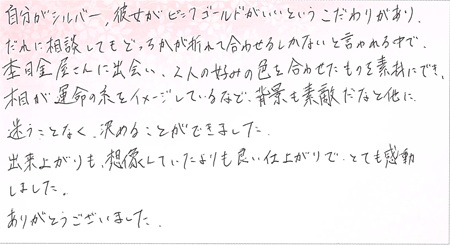 自分がシルバー、彼女がピンクゴールドがいいというこだわりがあり、
だれに相談してもどっちかが折れて合わせるしかないと言われる中で、
杢目金屋さんに出会い、2人の好みの色を合わせたものを素材にでき、
木目が運命の糸をイメージしているなど、背景も素敵だなと他に
迷うことなく、決めることができました。
出来上がりも、想像していたよりも良い仕上がりで、とても感動
しました。
ありがとうございました。